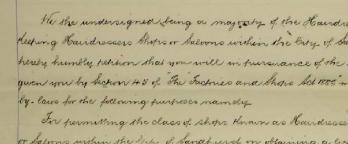 We the undersigned being a majority of the Hairdre
keeping Hairdressers Shops or Saloons within the City of
hereby humbly petition that you will in pursuance of the
given you by Section 45 of "The Factories and Shops Act 1885" m
by-laws for the following purposes namely
For permitting the class of shops known as Hairdresse
or Saloons within the City of Sandhurst on obtaining a lic